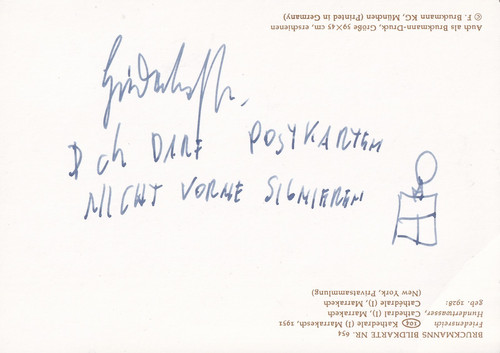 Ich DARF POSTKARTEN
NICHT VORNE SIGNIEREN
BRUCKMANNS BILDKARTE NR. 654
Friedensreich 104 Kathedrale (I) Marrakesch, 1951
Hundertwasser, Cathedral (I), Marrakech
geb. 1928: Cathédrale (I) Marrakech
(New York, Privatsammlung)
Auch als Bruckmann-Druck, Größe 59×45 cm, erschienen
© F. Bruckmann KG, München (Printed in Germany)